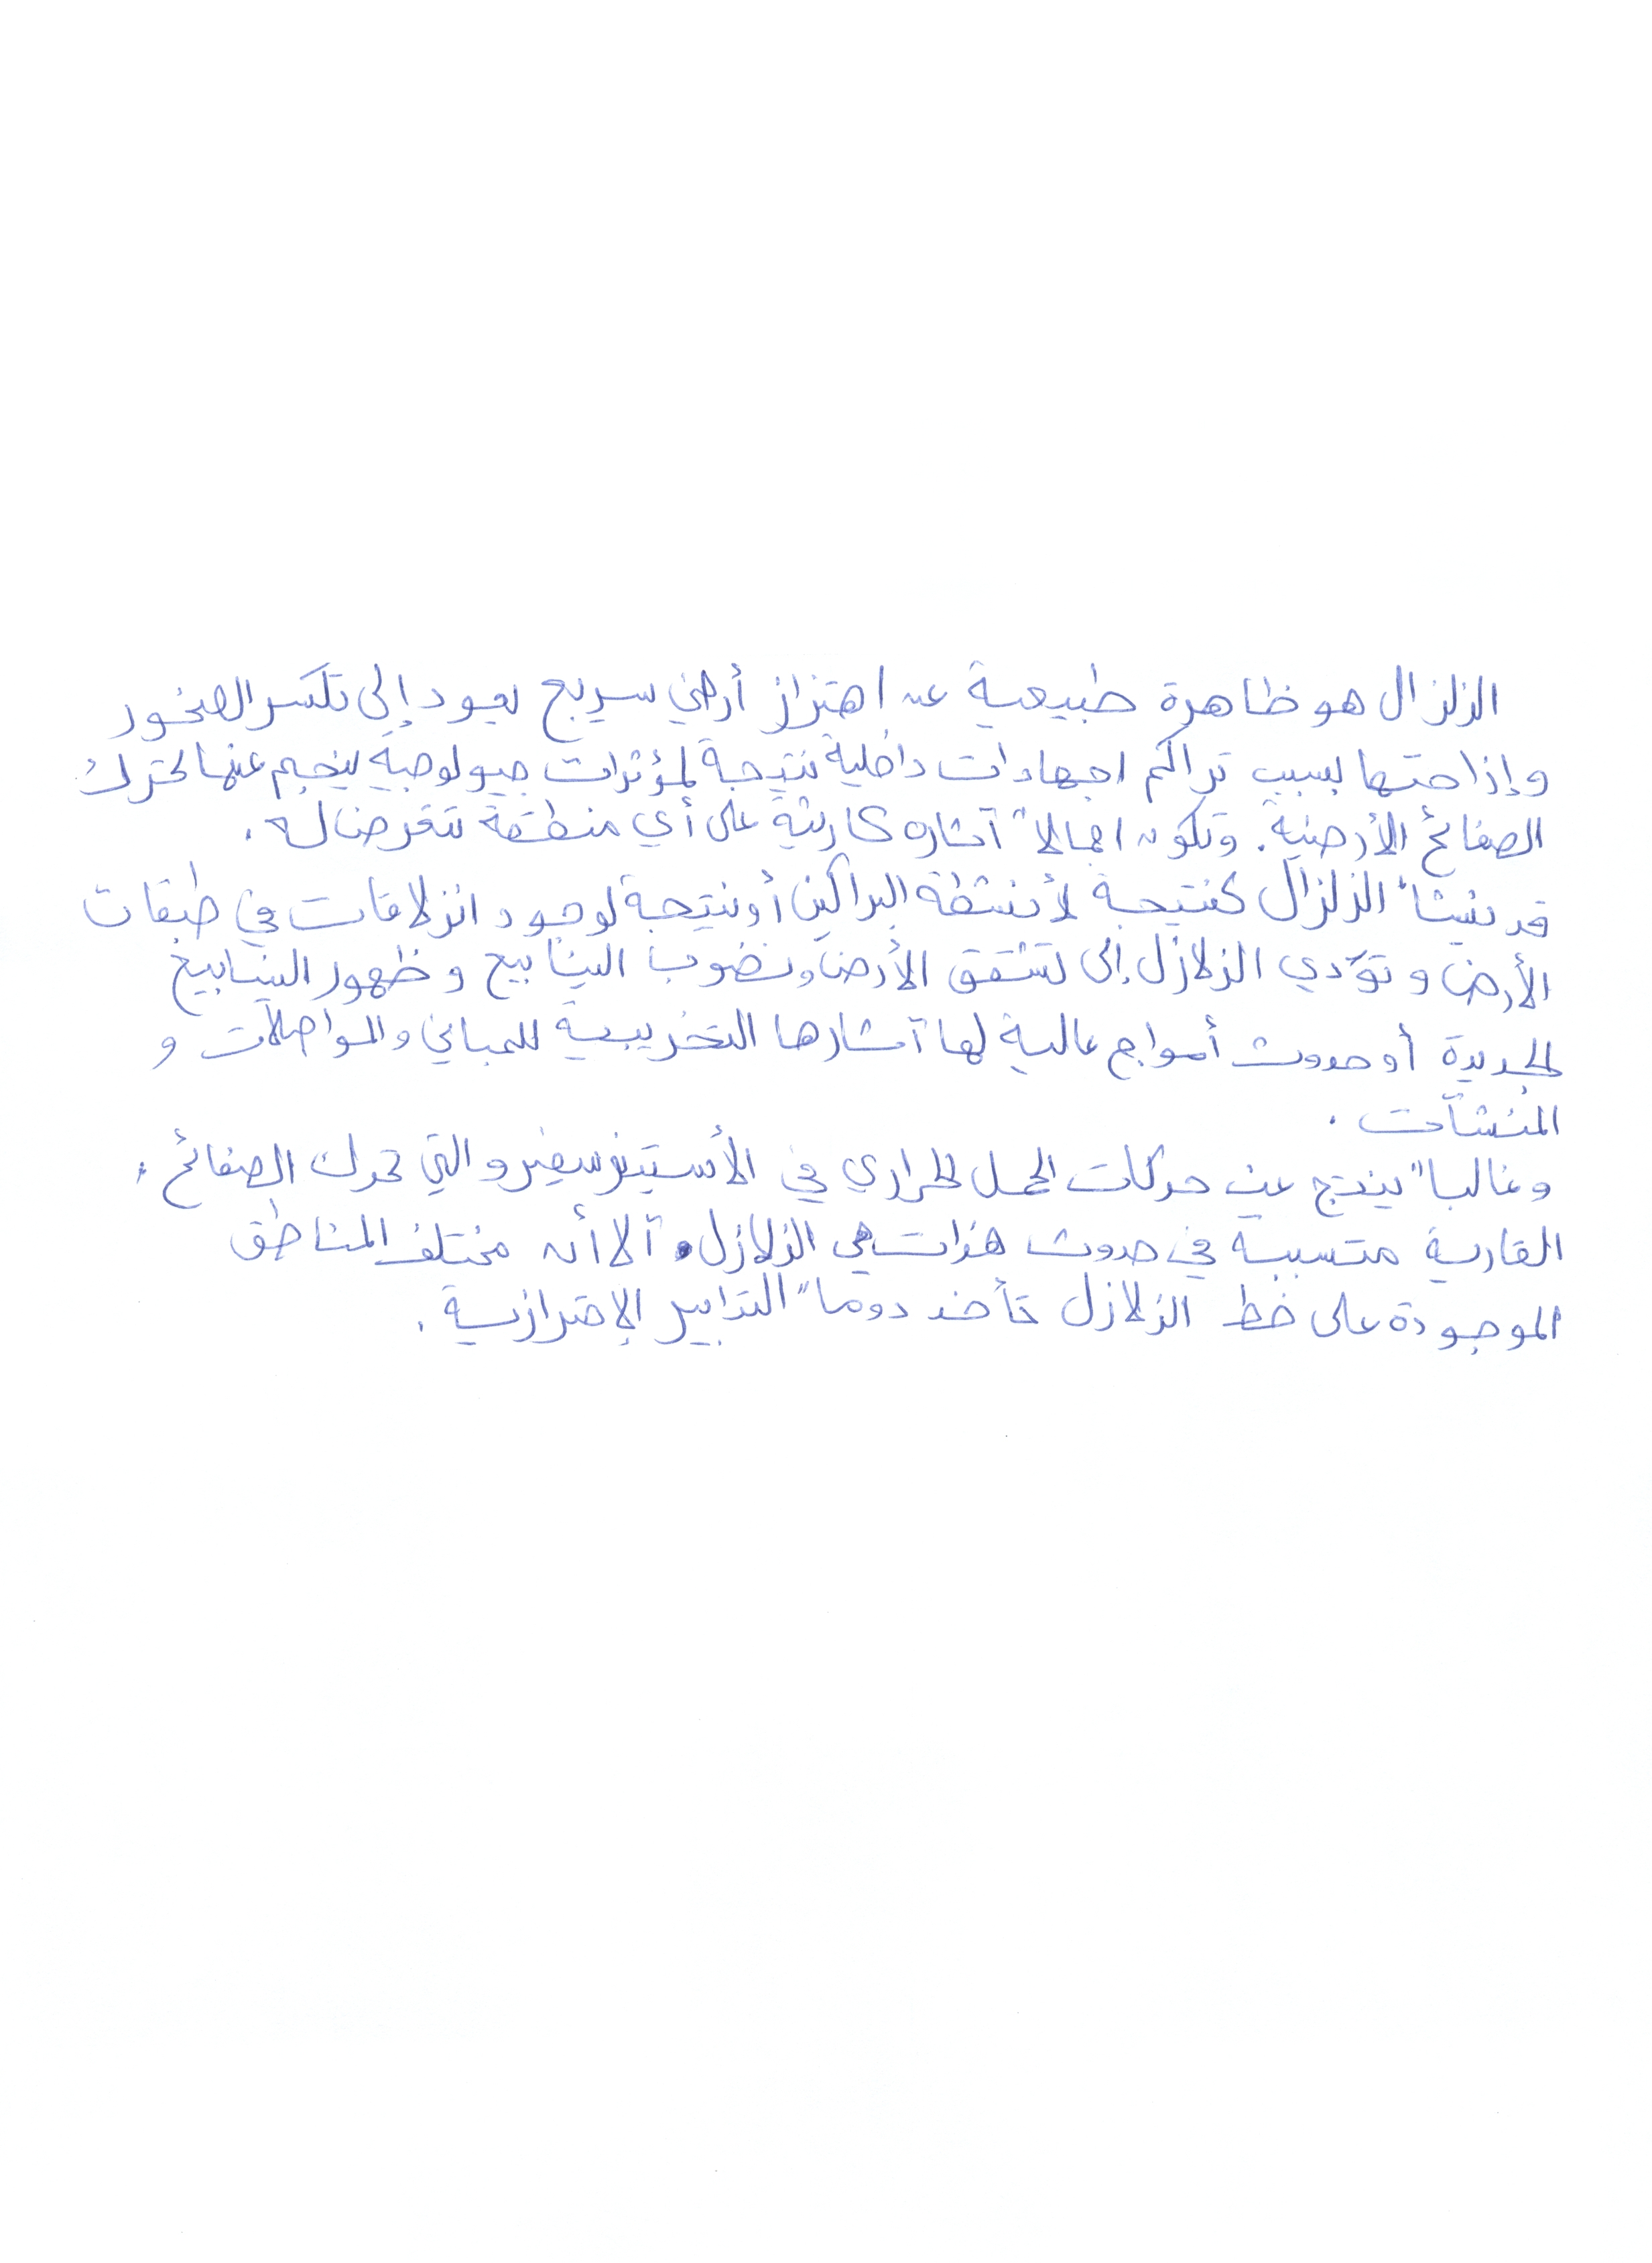 الزلزال هو ظاهرة طبيعية عن اهتزاز أرضي سريع يعود إلى تكسر الصخور
وإذاحتها بسبب تراكم اجهادات داخلية نتيجة لمؤثرات جيولوجية ينجم عنها تحرك
الصفائح الأرضية. وتكون اجمالاً آثاره كارثية على أي منطقة تتعرض له.
قد ينشأ الزلزال كنتيجة لأنشطة البراكين أو نتيجة لوجود انزلاقات في طبقات
الأرض وتؤدي الزلازل إلى تشقق الأرض ونضوب الينابيع وظهور الينابيع
الجديدة أو حدوث أمواج عالية لها آثارها التخريبية للمباني والمواصلات و
المنشآت.
وغالباً ينتج عن حركات الحمل الحراري في الأستينوسفير والتي تحرك الصفائح،
القارية متسببة في حدوث هزات هي الزلازل، آلا أن مختلف المناطق
الموجودة على خط الزلازل تأخذ دوماً التدابير الإحترازية.